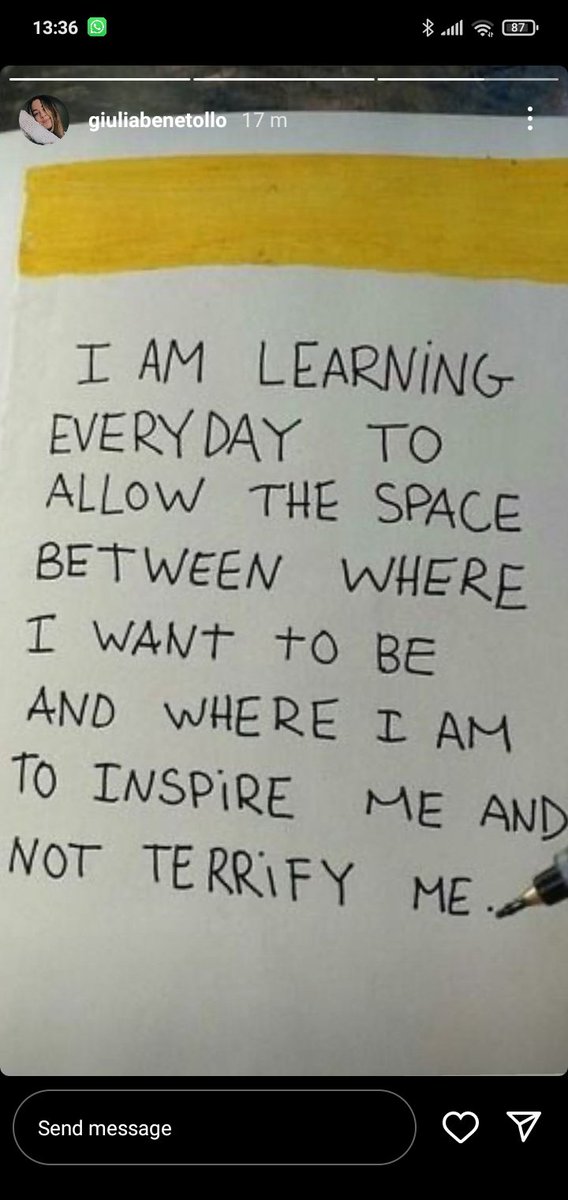 13:36
87
giuliabenetollo 17 m
I AM LEARNING
EVERYDAY TO
ALLOW THE SPACE
BETWEEN WHERE
I WANT TO BE
AND WHERE I AM
TO INSPIRE ME AND
NOT TERRIFY ME.
Send message